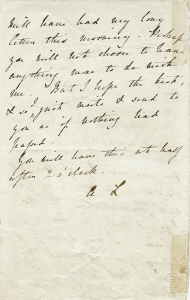 will have had my long
letter this morning. Perhaps
you will not choose to have
anything more to do with
me. But I hope the best,
& so I just write & send to
you as if nothing had
passed.
You will have this at half
after 2 o'clock.
A L